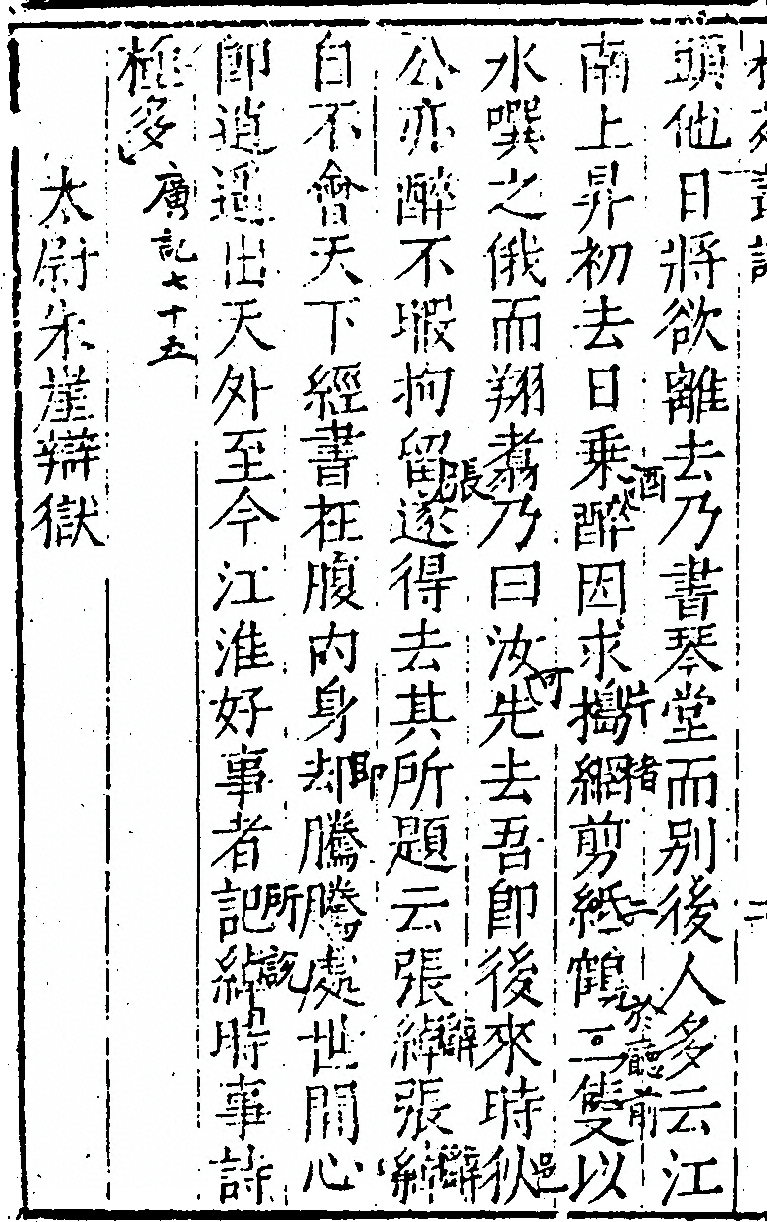 頭他日將欲離去乃書琴堂而别後人多云江
酒
片楮
二
於廳前
南上昇初去日乘醉因求搗網剪紙鶴二隻以
可
邑
水噀之俄而翔翥乃曰汝先去吾即後來時狄
張
辭
辭
公亦醉不暇拘留遂得去其所題云張綽張綽
即
自不會天下經書在腹内身却騰騰處世間心
所説
即逍遥出天外至今江淮好事者記綽時事詩
極多 廣記七十五
太尉朱崖辯獄